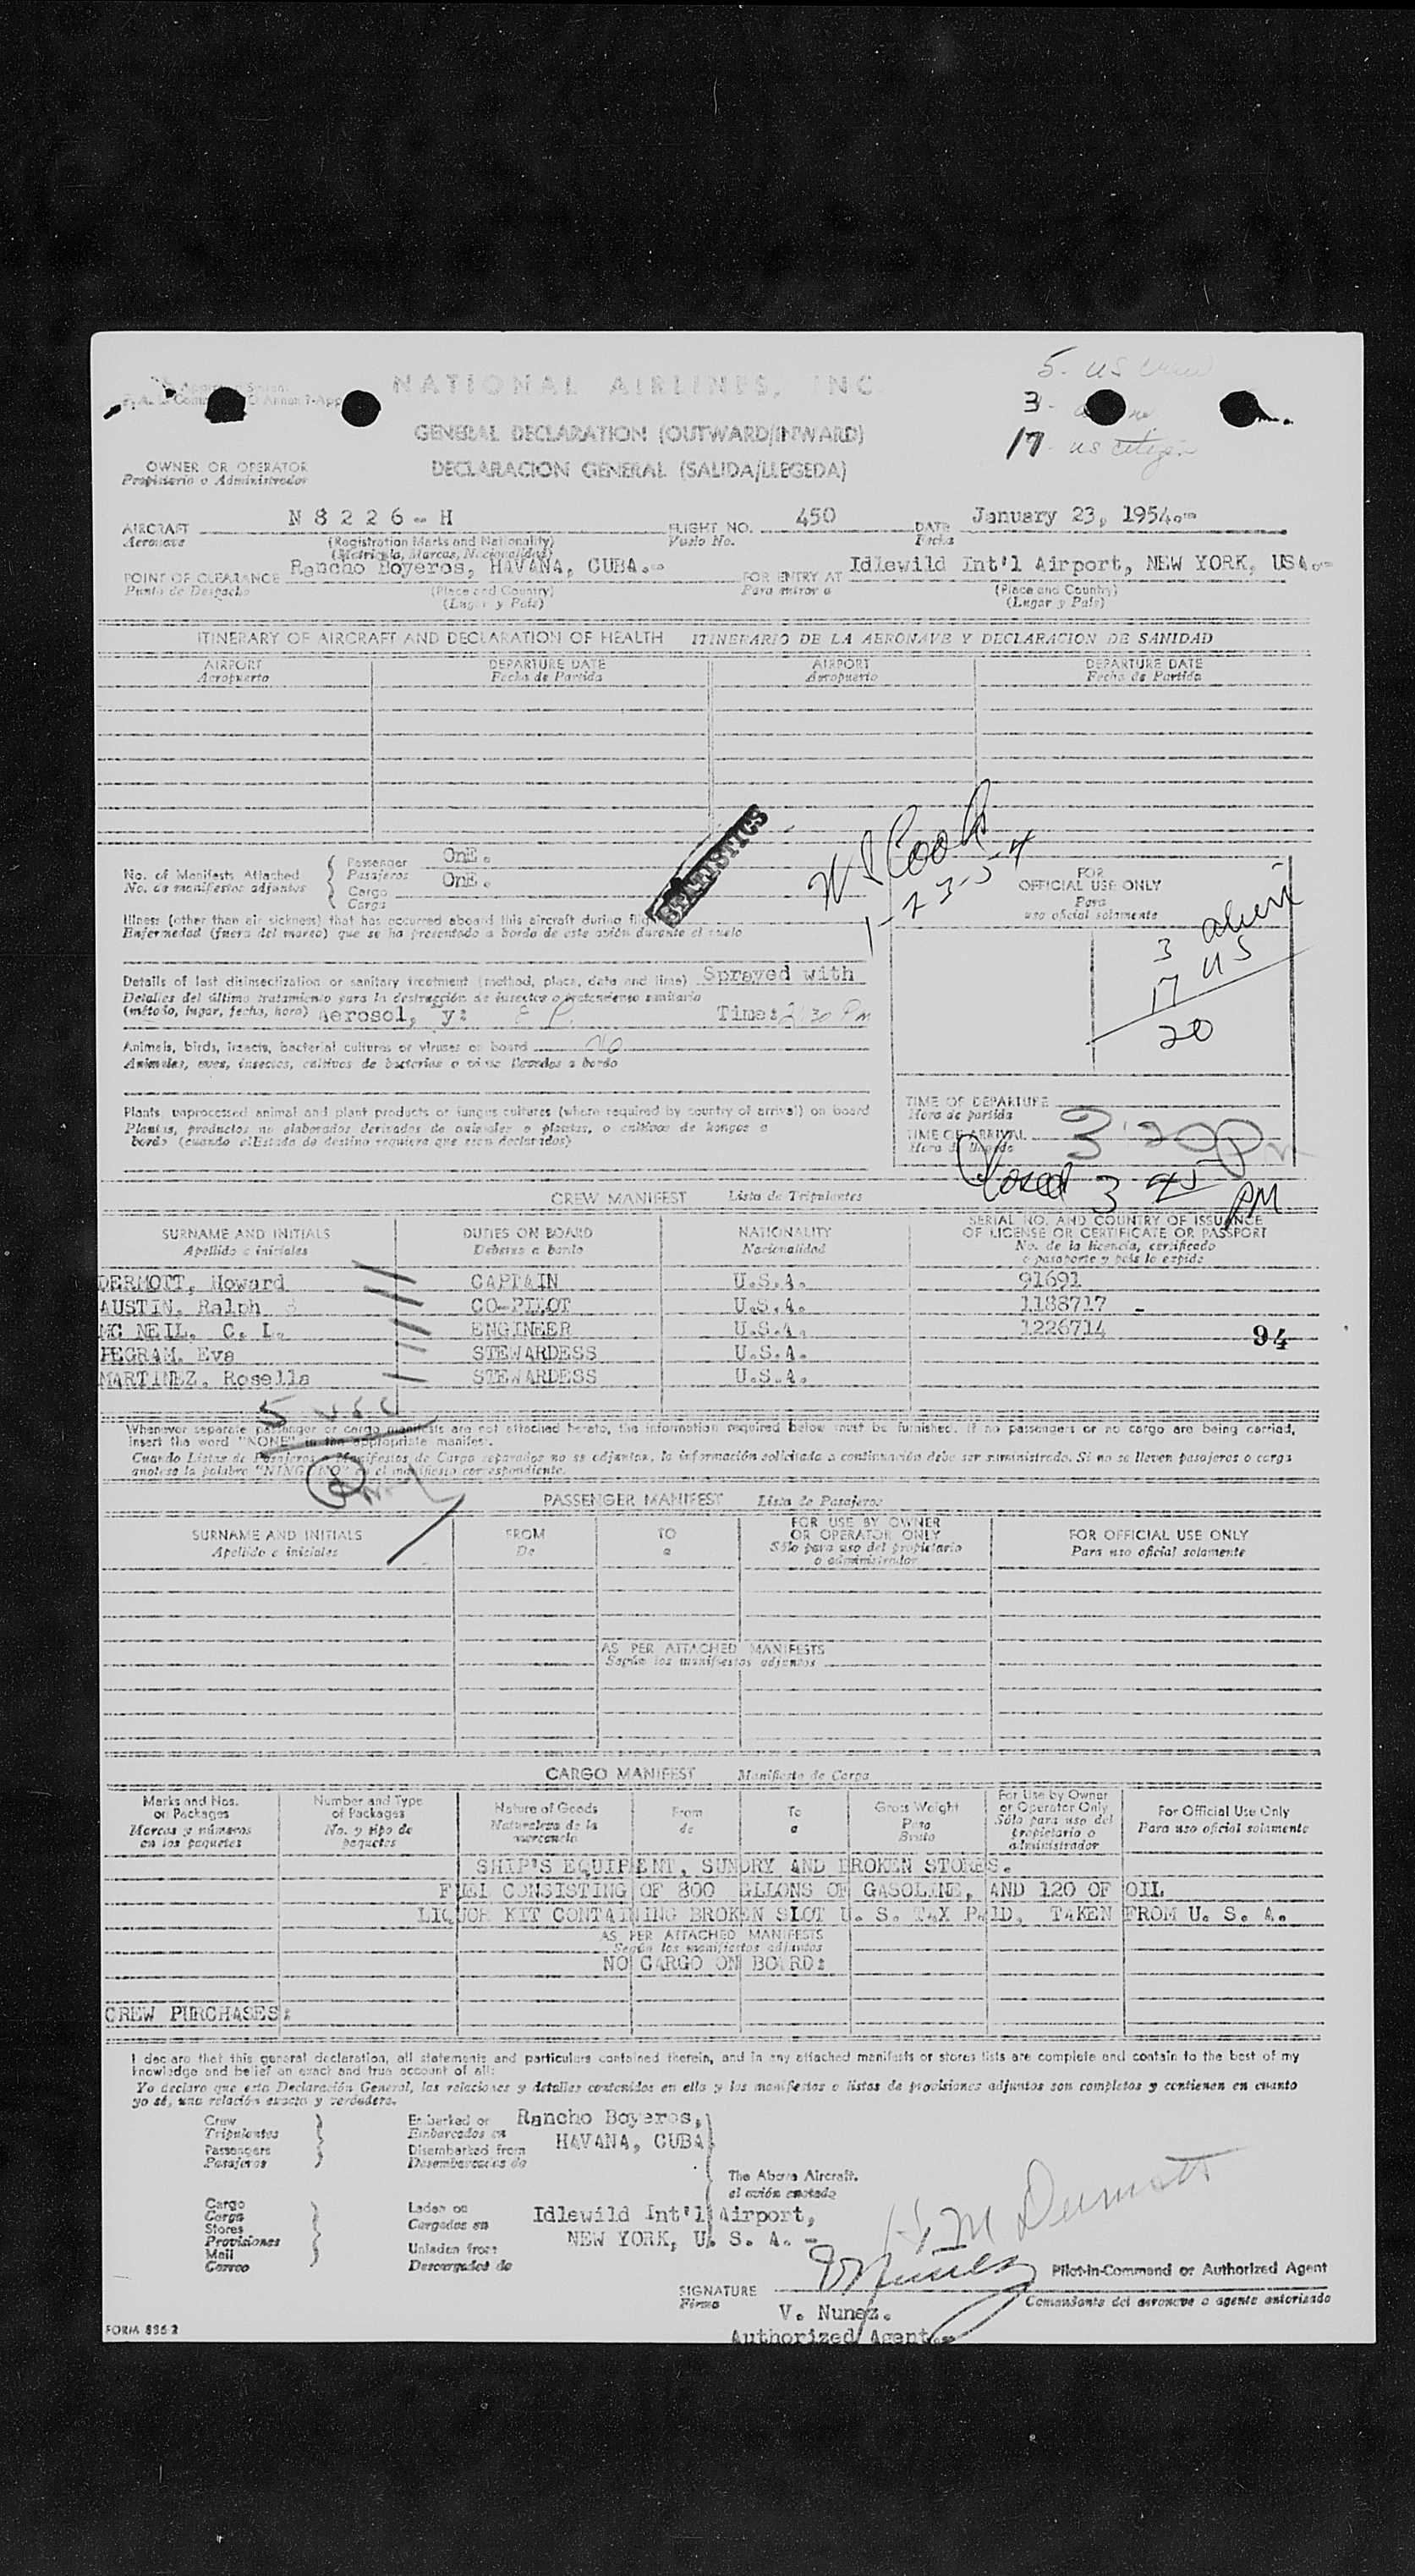 NATIONAL AIRLINES, INC.
5 - US crew
3 -
17 - US citizen
GENERAL DECLARATION (OUTWARD/INWARD)
DECLARACION GENERAL (SALIDA/LLEGEDA)
OWNER OR OPERATOR
Propietario o Administrador
AIRCRAFT N 8 2 2 6 - H FLIGHT NO. 450 DATE January 23, 1954.-
Aeronave (Registration Marks and Nationality) Vuelo No. Fecha
(Matricula, Marcas, Nacionalidad)
POINT OF CLEARANCE Rancho Boyeros, HAVANA, CUBA.- FOR ENTRY AT Idlewild Int'l Airport, NEW YORK, USA.-
Punto de Despacho (Place and Country) Para entrar a (Place and Country)
(Lugar y País) (Lugar y País)
ITINERARY OF AIRCRAFT AND DECLARATION OF HEALTH ITINERARIO DE LA AERONAVE Y DECLARACION DE SANIDAD
AIRPORT DEPARTURE DATE AIRPORT DEPARTURE DATE
Aeropuerto Fecha de Partida Aeropuerto Fecha de Partida
STATISTICS
Cook
1-23-54
No. of Manifests Attached Passenger OnE.
No. de manifiestos adjuntos Pasajeros OnE.
Cargo
Carga
FOR
OFFICIAL USE ONLY
Para
uso oficial solamente
Illness (other than air sickness) that has occurred aboard this aircraft during
Enfermedad (fuera del mareo) que se ha presentado a bordo de este avión durante el vuelo
3 alien
17 US
20
Details of last disinsectization or sanitary treatment (method, place, date and time) Sprayed with
Detalles del último tratamiento para la destrucción de insectos o tratamiento sanitario
(método, lugar, fecha, hora) Aerosol, y: Time: 2:30 Pm
Animals, birds, insects, bacterial cultures or viruses on board No
Animales, aves, insectos, cultivos de bacterias o virus llevados a bordo
Plants, unprocessed animal and plant products or fungus cultures (where required by country of arrival) on board
Plantas, productos no elaborados derivados de animales o plantas, o cultivos de hongos a
bordo (cuando el Estado de destino requiera que sean declarados)
TIME OF DEPARTURE
Hora de partida
TIME OF ARRIVAL 3:20 pm
Hora de llegada
Closed 3 45 PM
CREW MANIFEST Lista de Tripulantes
SURNAME AND INITIALS DUTIES ON BOARD NATIONALITY SERIAL NO. AND COUNTRY OF ISSUANCE
Apellido e iniciales Deberes a bordo Nacionalidad OF LICENSE OR CERTIFICATE OR PASSPORT
No. de la licencia, certificado
o pasaporte y país lo expide
DERMOTT, Howard CAPTAIN U.S.A. 91691
AUSTIN, Ralph CO-PILOT U.S.A. 1188717 -
MC NEIL, C. L. ENGINEER U.S.A. 1226714
94
PEGRAM, Eva STEWARDESS U.S.A.
MARTINEZ, Rosella STEWARDESS U.S.A.
5 USC
Whenever separate passenger or cargo manifests are not attached hereto, the information required below must be furnished. If no passengers or no cargo are being carried,
insert the word "NONE" in the appropriate manifest.
Cuando Listas de Pasajeros o Manifiestos de Carga separados no se adjuntan, la información solicitada a continuación debe ser suministrada. Si no se lleven pasajeros o carga
anótese la palabra el manifiesto correspondiente.
PASSENGER MANIFEST Lista de Pasajeros
SURNAME AND INITIALS FROM TO FOR USE BY OWNER FOR OFFICIAL USE ONLY
Apellido e iniciales De a OR OPERATOR ONLY Para uso oficial solamente
Sólo para uso del propietario
o administrador
AS PER ATTACHED MANIFESTS
Según los manifiestos adjuntos
CARGO MANIFEST Manifiesto de Carga
Marks and Nos. Number and Type Nature of Goods From To Gross Weight For Use by Owner For Official Use Only
on Packages of Packages Naturaleza de la de a Peso or Operator Only Para uso oficial solamente
Marcas y números No. y tipo de mercancía Bruto Sólo para uso del
en los paquetes paquetes propietario o
administrador
SHIP'S EQUIPMENT, SUNDRY AND BROKEN STORES.
FUEL CONSISTING OF 800 GLLONS OF GASOLINE, AND 120 OF OIL
LIQUOR KIT CONTAINING BROKEN SLOT U. S. TAX PAID, TAKEN FROM U. S. A.
AS PER ATTACHED MANIFESTS
Según los manifiestos adjuntos
NO CARGO ON BOARD:
CREW PURCHASES:
I declare that this general declaration, all statements and particulars contained therein, and in any attached manifests or stores lists are complete and contain to the best of my
knowledge and belief an exact and true account of all:
Yo declaro que esta Declaración General, las relaciones y detalles contenidos en ella y los manifiestos o listas de provisiones adjuntos son completos y contienen en cuanto
yo sé, una relación exacta y verdadera.
Crew Embarked on Rancho Boyeros,
Tripulantes Embarcados en HAVANA, CUBA
Passengers Disembarked from
Pasajeros Desembarcados de
The Above Aircraft.
el avión anotado
Cargo Laden on Idlewild Int'l Airport,
Carga Cargados en NEW YORK, U. S. A. -
Stores
Provisiones
Mail Unladen from
Correo Descargados de
H M Dermott
V Nunez
Pilot-in-Command or Authorized Agent
SIGNATURE
Firma
Comandante del aeronave o agente autorizado
V. Nunez.
Authorized Agent.-
FORM 836-2